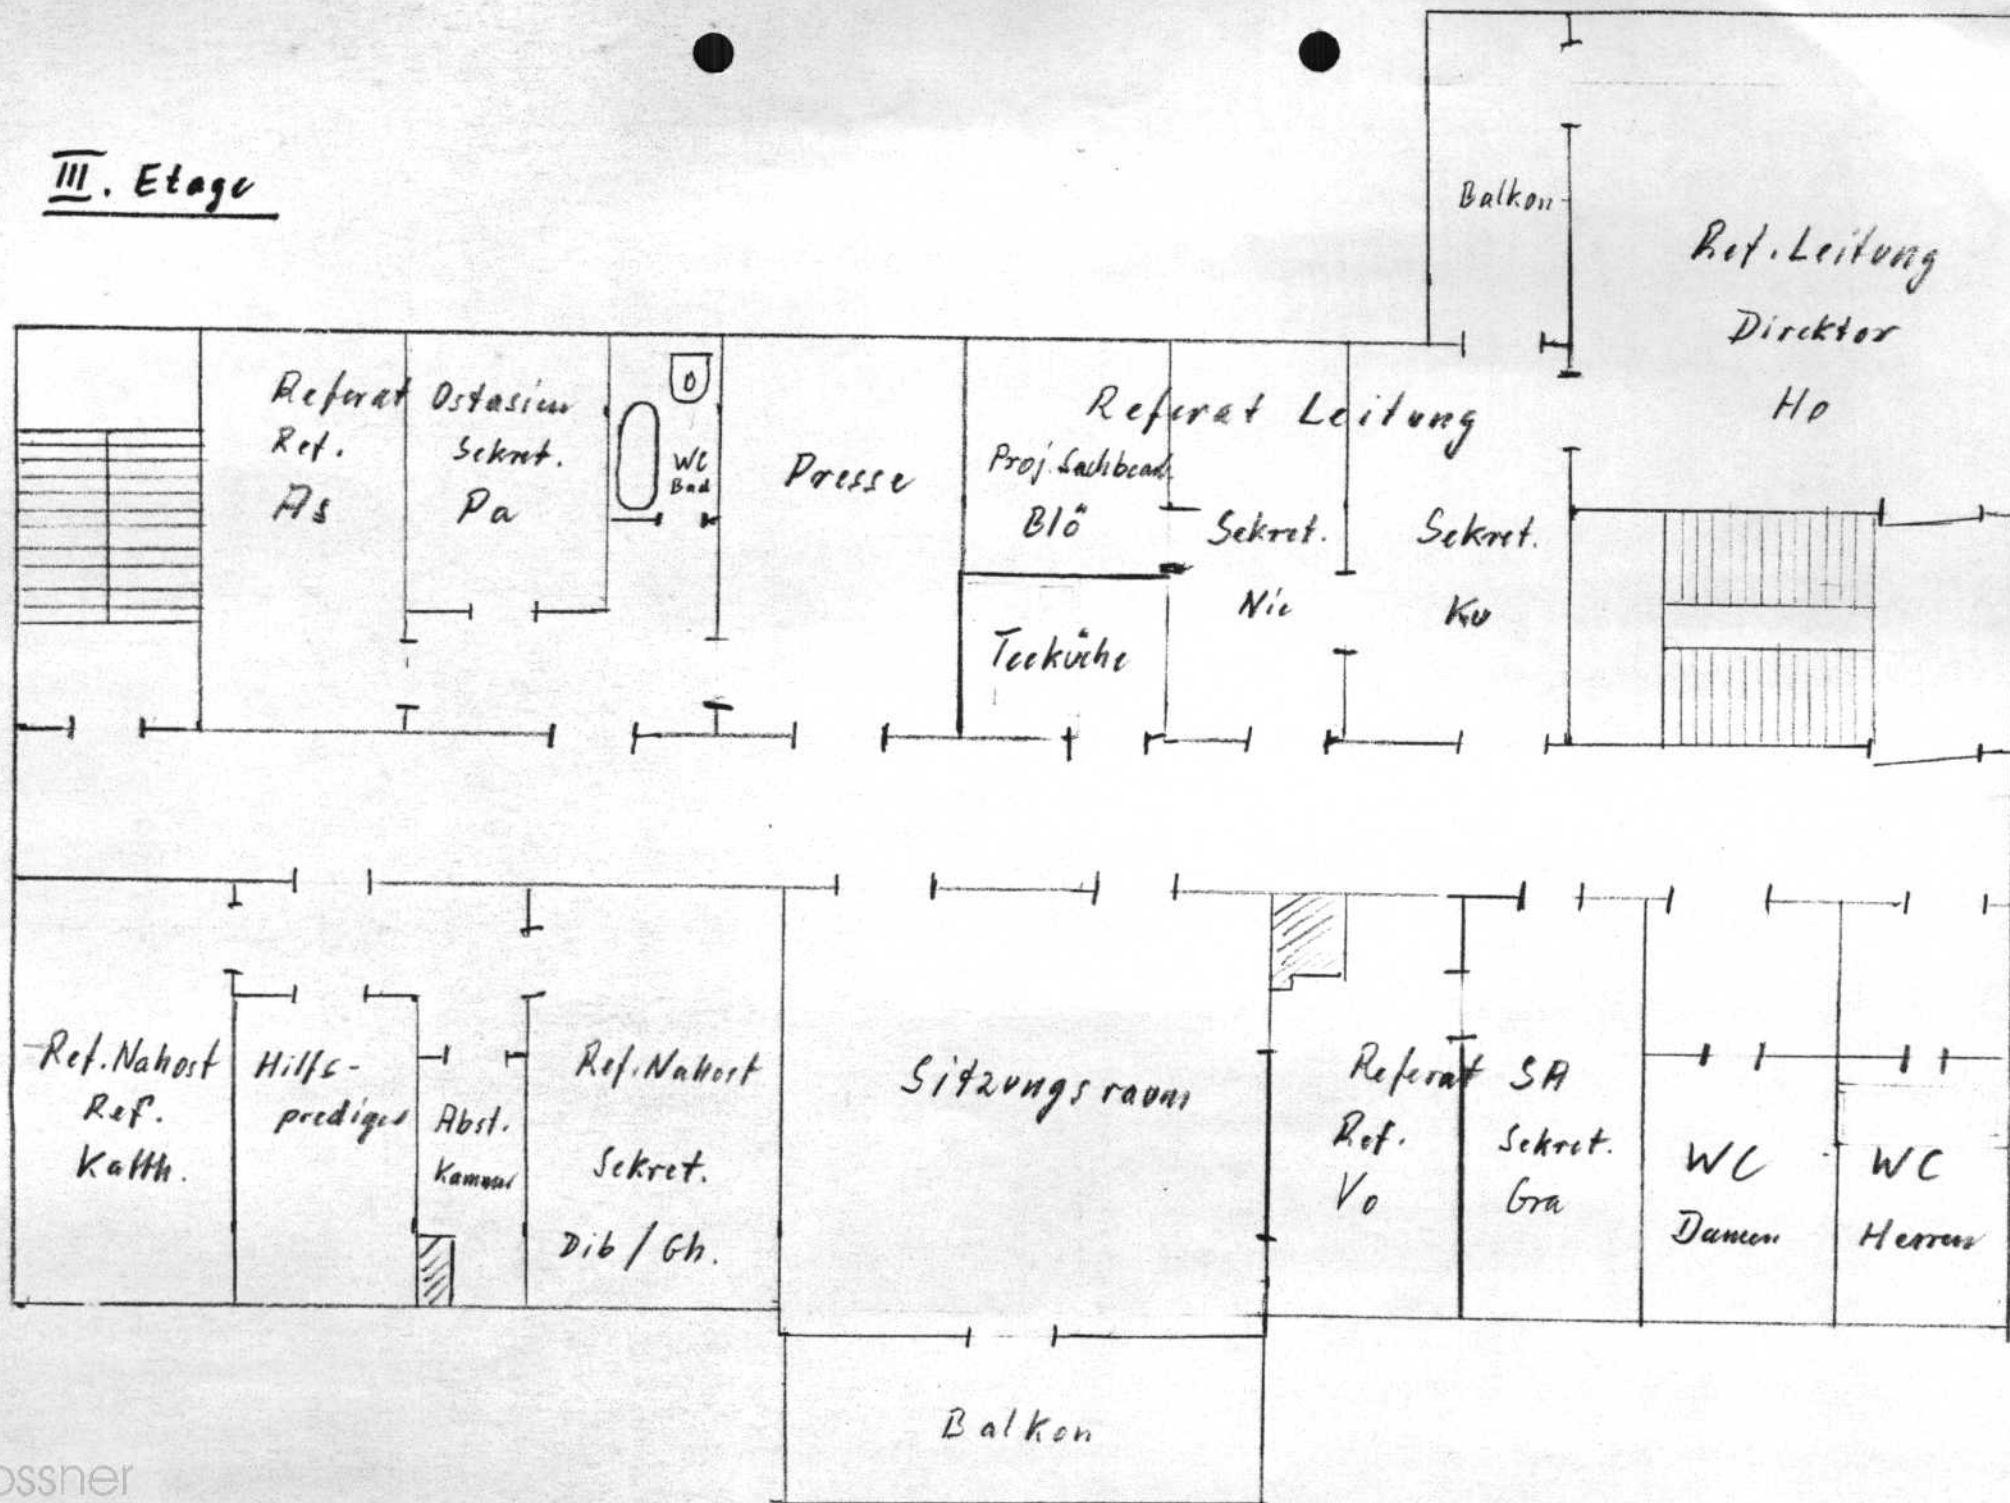 III. Etage
Balkon
Ref. Leitung
Direktor
Ho
Referat Ostasien
Ref.
As
Sekret.
Pa
WC
Bad
Presse
Referat Leitung
Proj. Sachbearb.
Blö
Teeküche
Sekret.
Nie
Sekret.
Ku
Ref. Nahost
Ref.
Kalth.
Hilfs-
prediger
Abst.
Kammer
Ref. Nahost
Sekret.
Dib / Gh.
Sitzungsraum
Referat SA
Ref.
Vo
Sekret.
Gra
WC
Damen
WC
Herren
Balkon
ossner